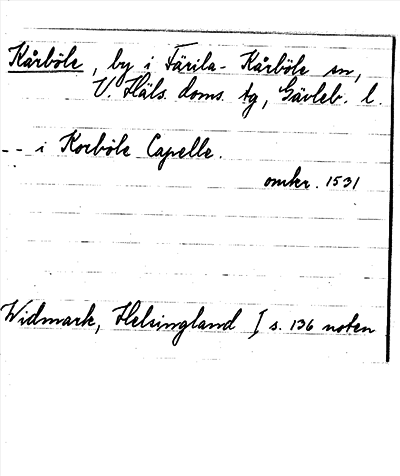 Kårböle, by i Färila-Kårböle sn,
V. Häls. doms. tg, Gävleb. l.
-- i Korböle Capelle.
omkr. 1531
Widmark, Helsingland I s. 136 noten